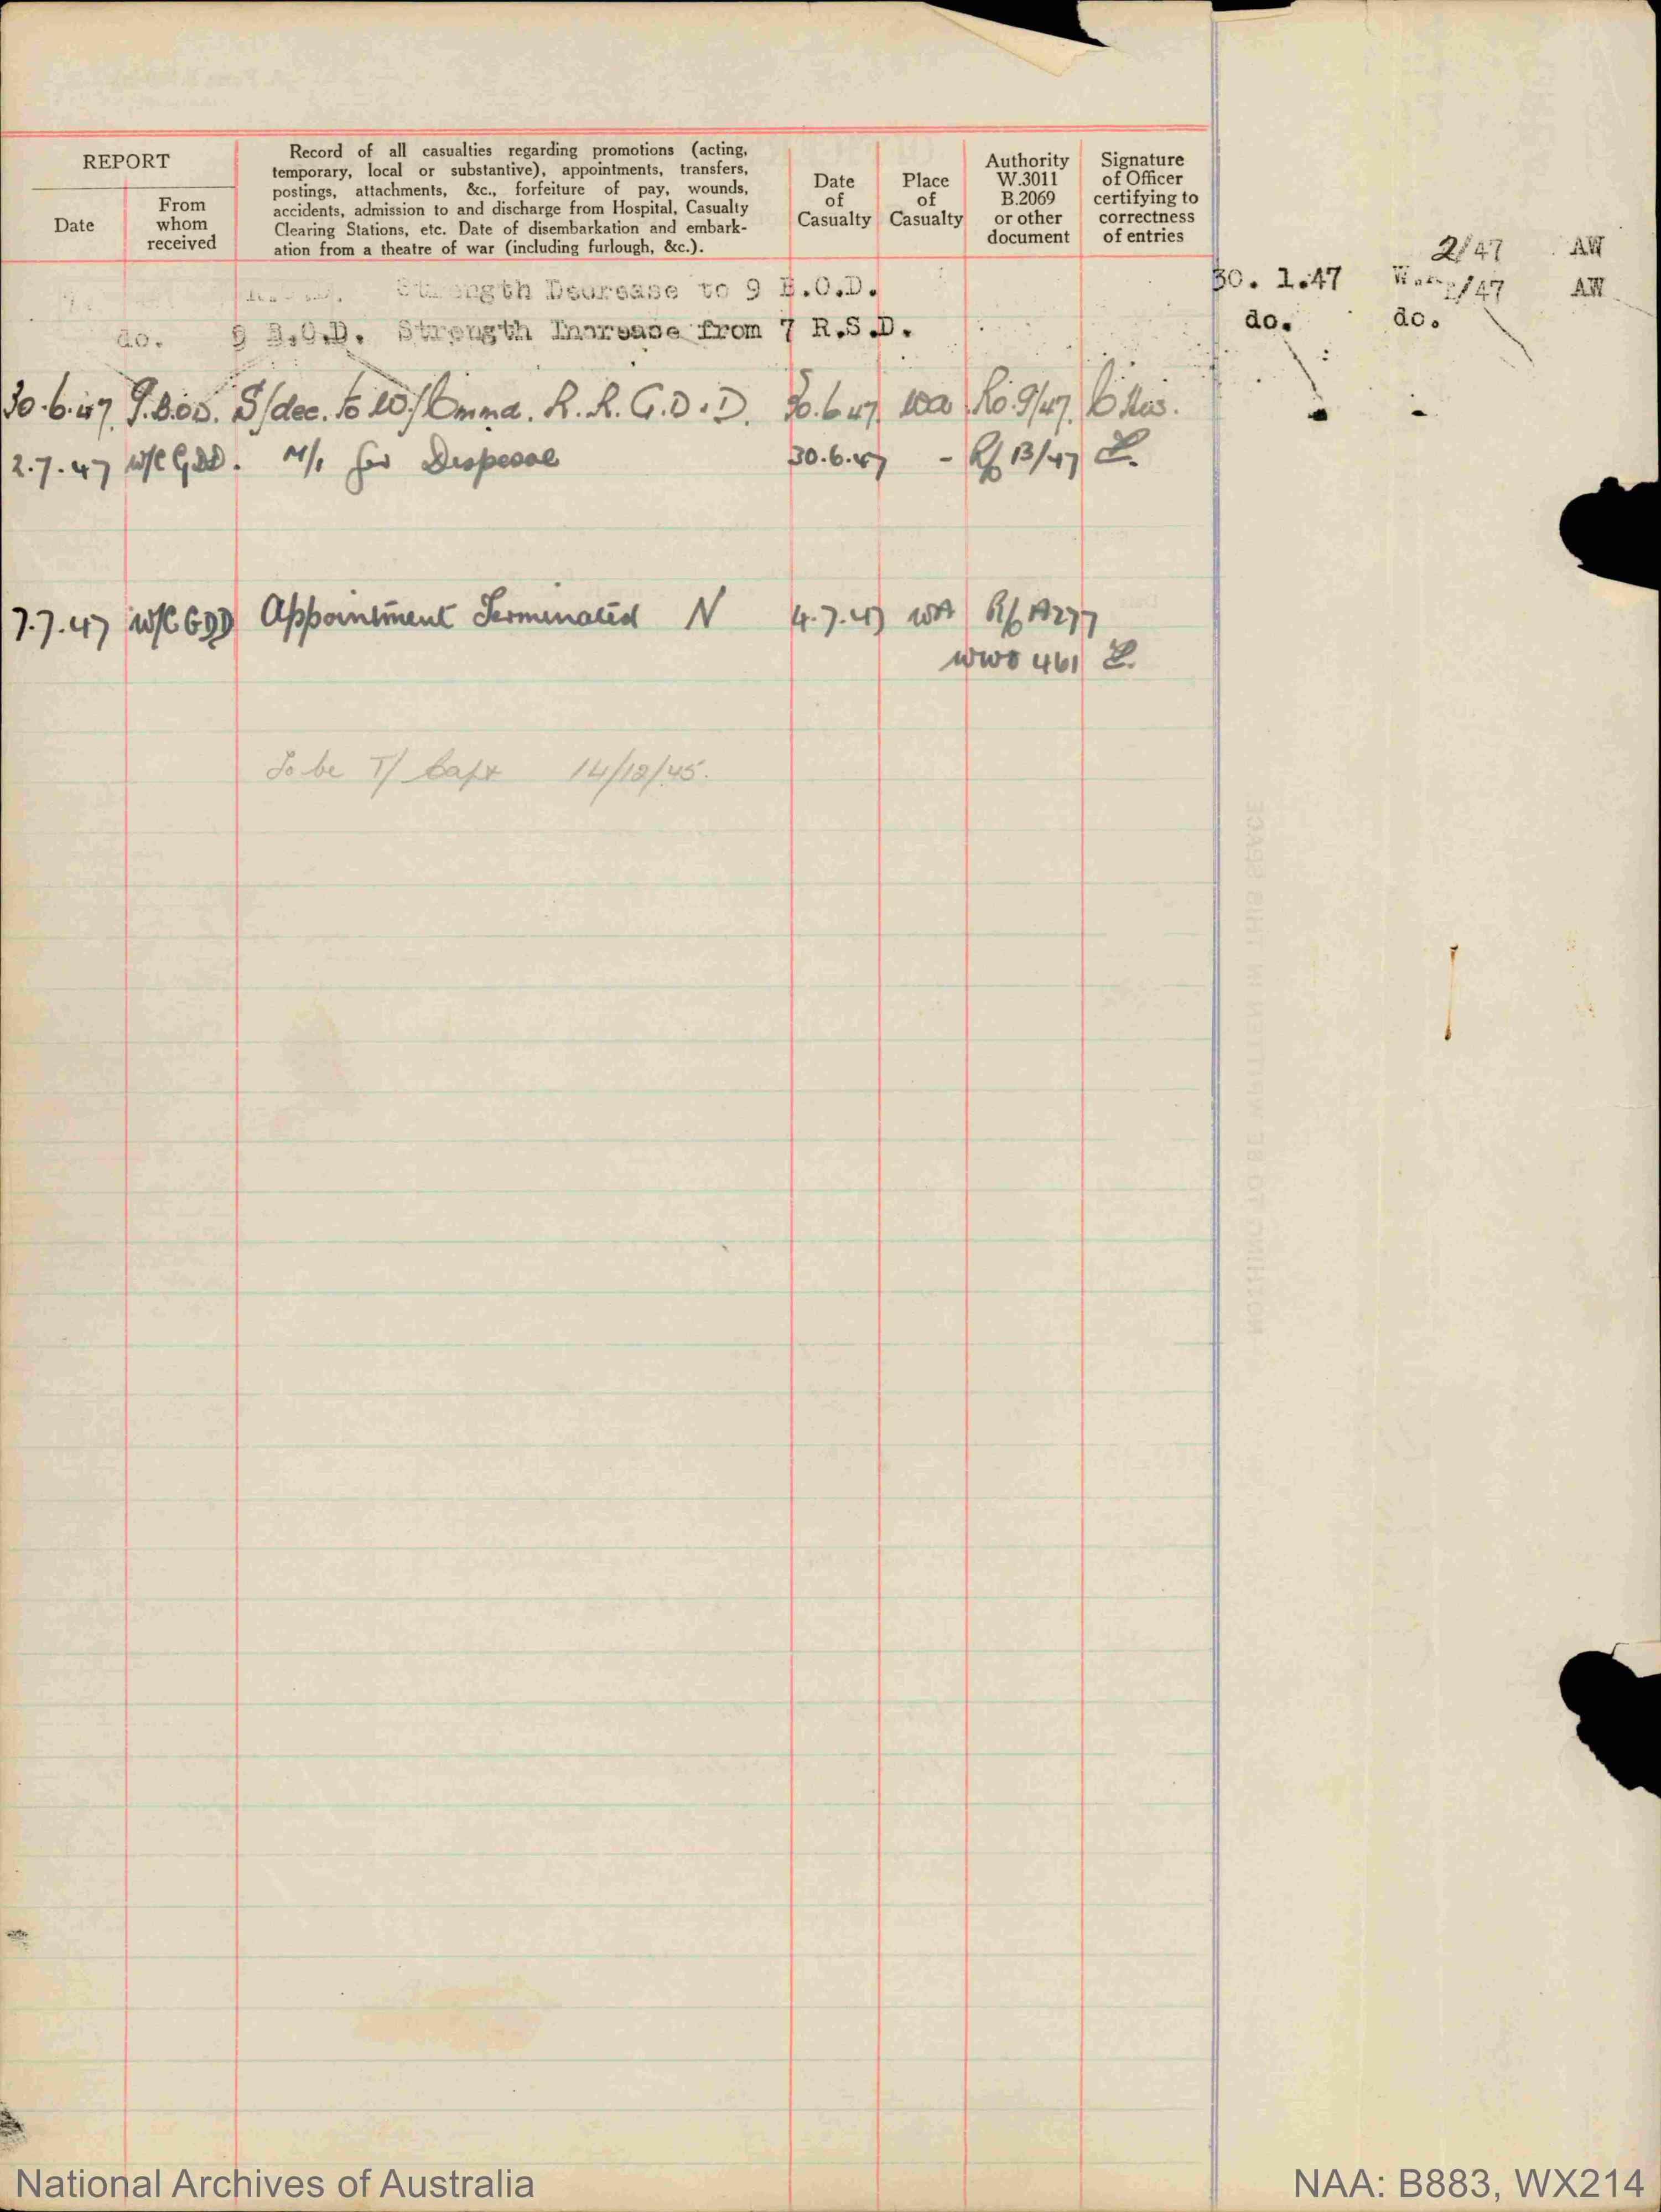 REPORT
Date
From whom received
Record of all casualties regarding promotions (acting,
temporary, local or substantive), appointments, transfers,
postings, attachments, &c., forfeiture of pay, wounds,
accidents, admission to and discharge from Hospital, Casualty
Clearing Stations, etc. Date of disembarkation and embark-
ation from a theatre of war (including furlough, &c.).
Date of Casualty
Place of Casualty
Authority W.3011 B.2069 or other document
Signature of Officer certifying to correctness of entries
2/47 AW
Strength Decrease to 9 B.O.D. 30. 1.47 2/47 AW
do. 9 B.O.D. Strength Increase from 7 R.S.D. do. do.
30.6.47 9.B.O.D. S/dec. to W/Comnd. R.R.G.D.D. 30.6.47 WA Ro.9/47
2.7.47 W/C GDD. M/I for Disposal 30.6.47 - 13/47
7.7.47 W/C GDD Appointment Terminated N 4.7.47 WA A277
WWO 461
To be T/ Capt 14/12/45.
NOTHING TO BE WRITTEN IN THIS SPACE
National Archives of Australia
NAA: B883, WX214